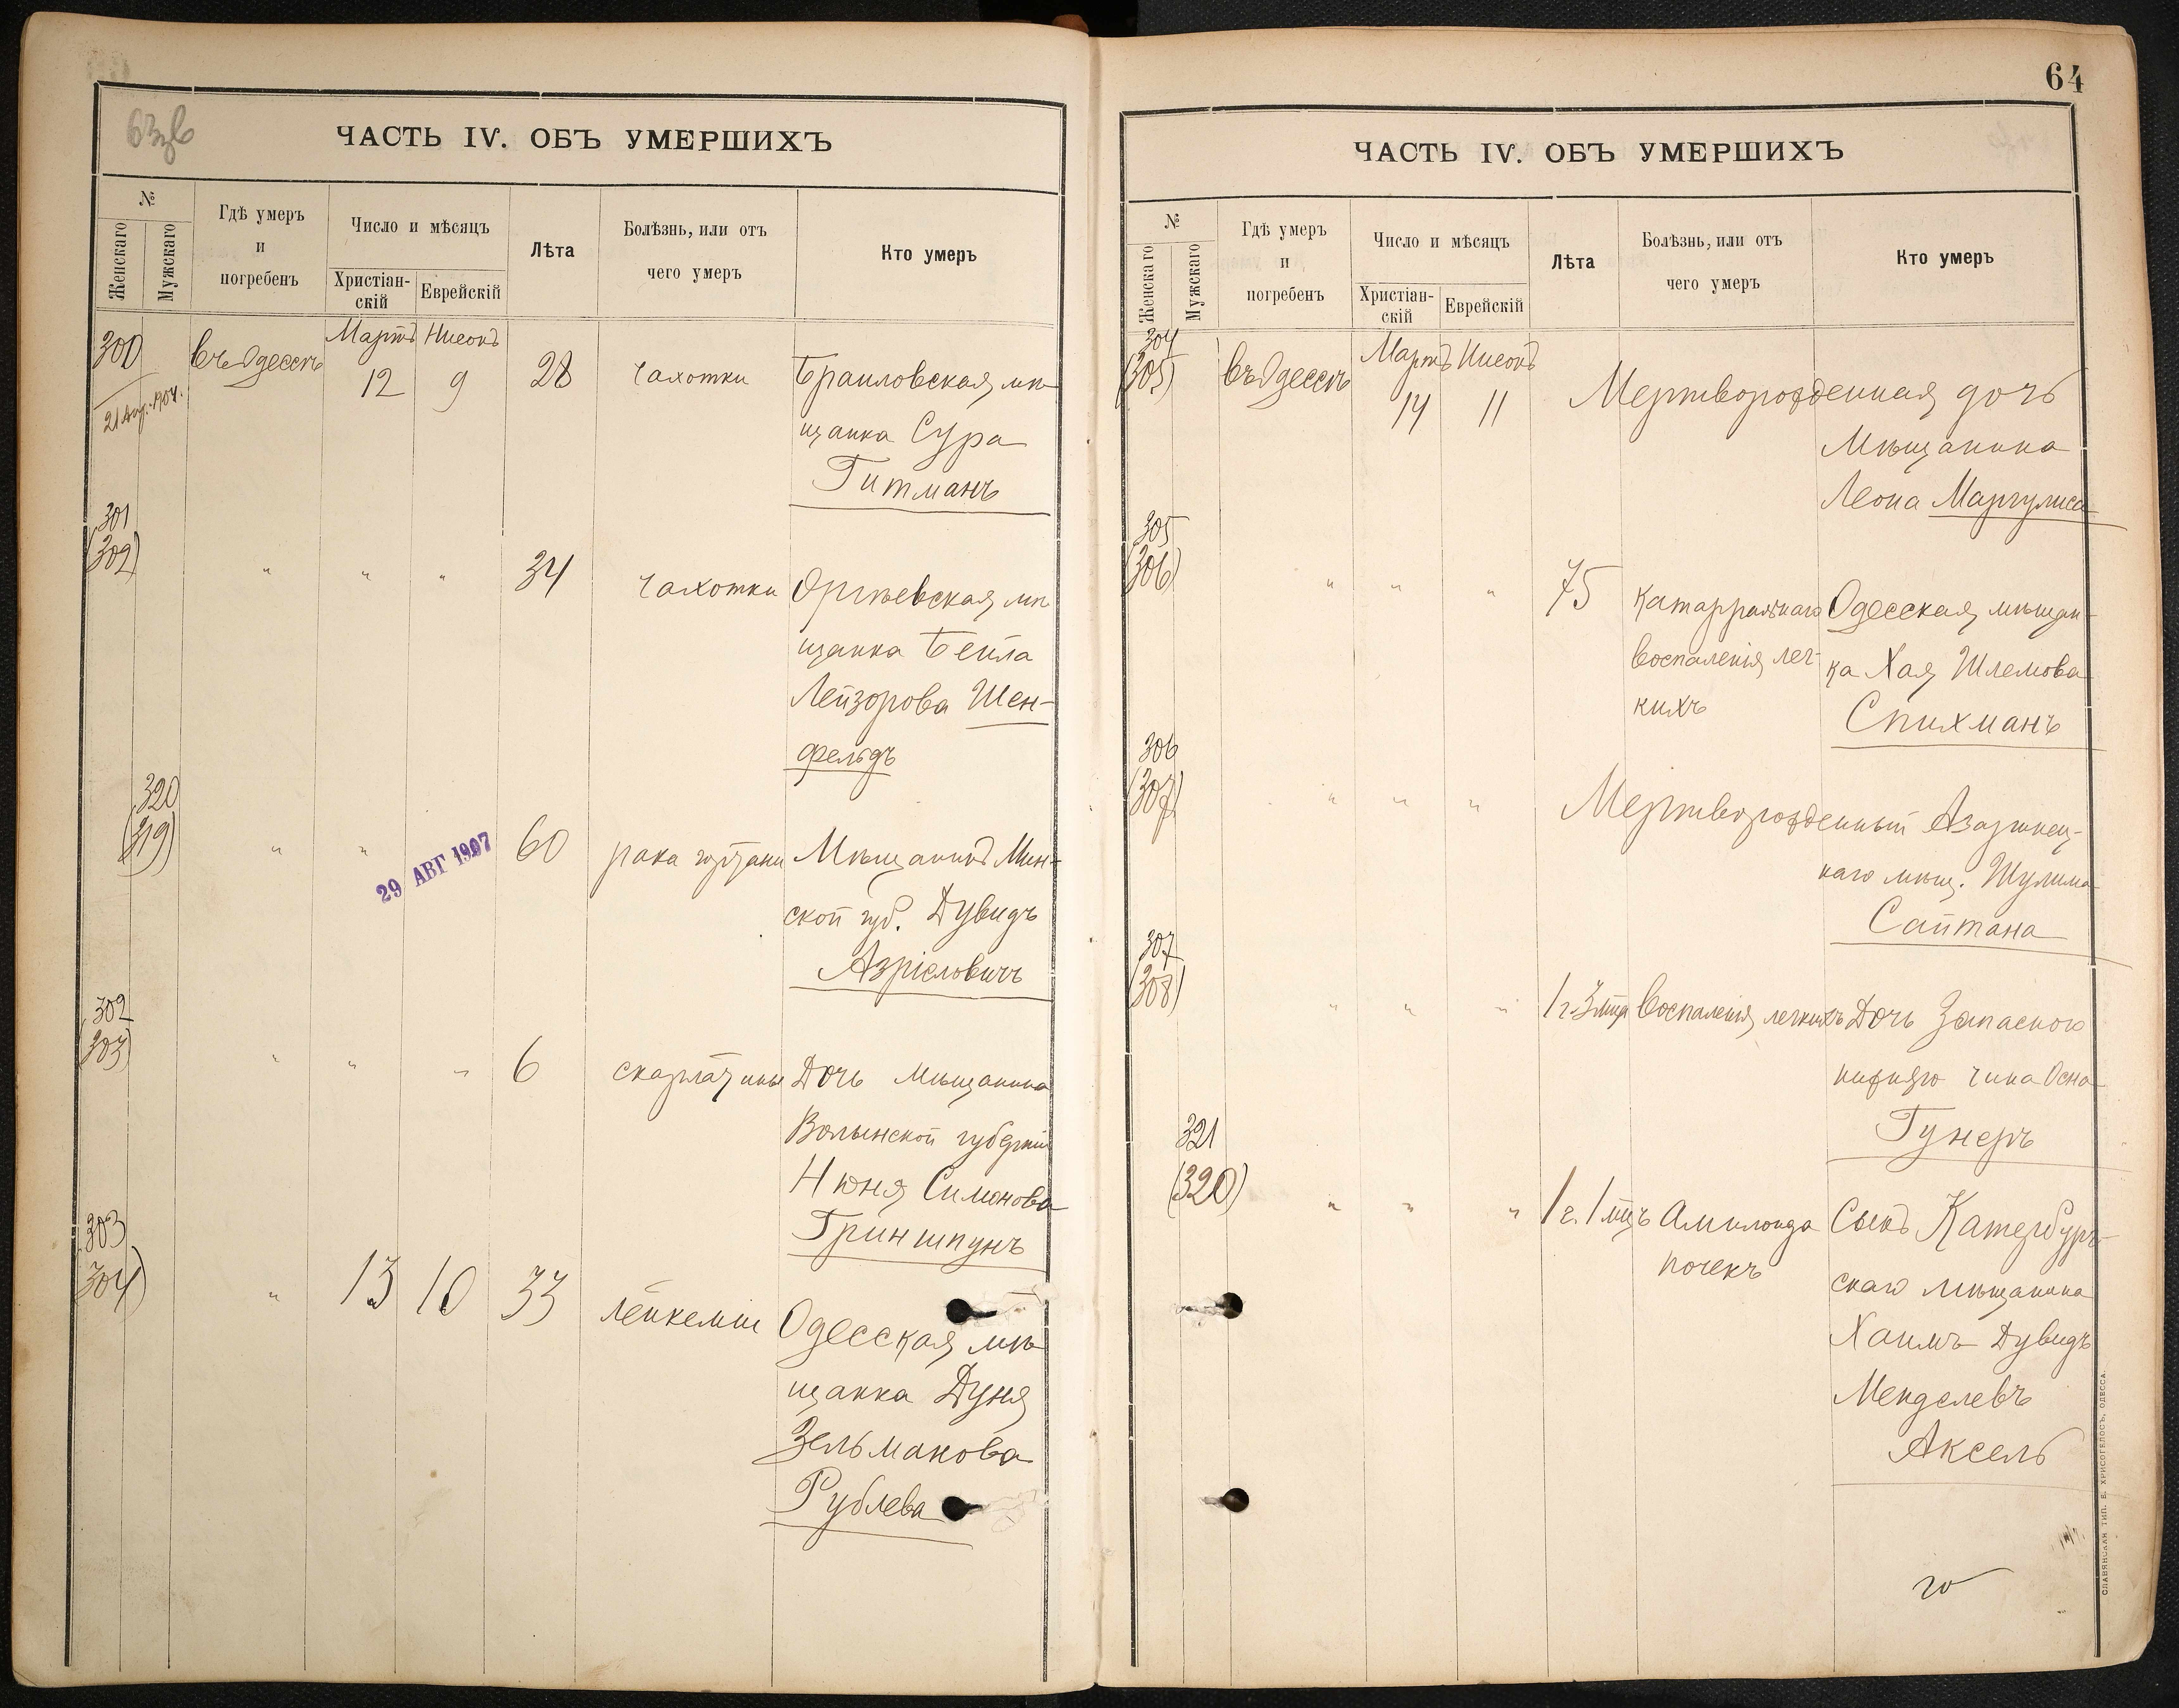 63 об
ЧАСТЬ IV. ОБЪ УМЕРШИХЪ
№
Женскаго
Мужскаго
Гдѣ умеръ
и
погребенъ
Число и мѣсяцъ
Христіан-
скій
Еврейскій
Лѣта
Болѣзнь, или отъ
чего умеръ
Кто умеръ
300
въ Одессѣ
Мартъ
Нисонъ
12
9
28
чахотки
Браиловская мѣ-
щанка Сура
Гитманъ
21 Авг. 1904.
301
(302)
"
"
"
34
чахотки
Оргѣевская мѣ
щанка Бейла
Лейзорова Шен-
фельдъ
320
(319)
"
"
29 АВГ 1907
60
рака гортани
Мѣщанинъ Мин-
ской губ. Дувидъ
Азріеловичъ
302
(303)
"
"
"
6
скарлатины
Дочь мѣщанина
Волынской губерніи
Нюня Симонова
Гриншпунъ
303
304)
"
13
10
33
лейкеміи
Одесская мѣ
щанка Дуня
Зельманова
Рублева
64
ЧАСТЬ IV. ОБЪ УМЕРШИХЪ
№
Женскаго
Мужскаго
Гдѣ умеръ
и
погребенъ
Число и мѣсяцъ
Христіан-
скій
Еврейскій
Лѣта
Болѣзнь, или отъ
чего умеръ
Кто умеръ
304
(305)
въ Одессѣ
Мартъ
Нисонъ
14
11
Мертворожденная дочь
Мѣщанина
Леона Маргулиса
305
(306)
"
"
"
75
Катарральнаго
воспаленія лег-
кихъ
Одесская мѣщан-
ка Хая Шлемова
Спихманъ
306
(307)
"
"
"
Мертворожденный Азаринец-
каго мѣщ. Шулима
Сайтана
307
(308)
"
"
"
1 г. 3 мца
Воспаленія легкихъ
Дочь Запасного
нижняго чина Осна
Гунеръ
321
(320)
"
"
"
1 г. 1 мцъ
Амилоида
почекъ
Сынъ Катербург-
скаго мѣщанина
Хаимъ Дувидъ
Менделевъ
Аксель
СЛАВЯНСКАЯ ТИП. Е. ХРИСОГЕЛОСЪ, ОДЕССА.